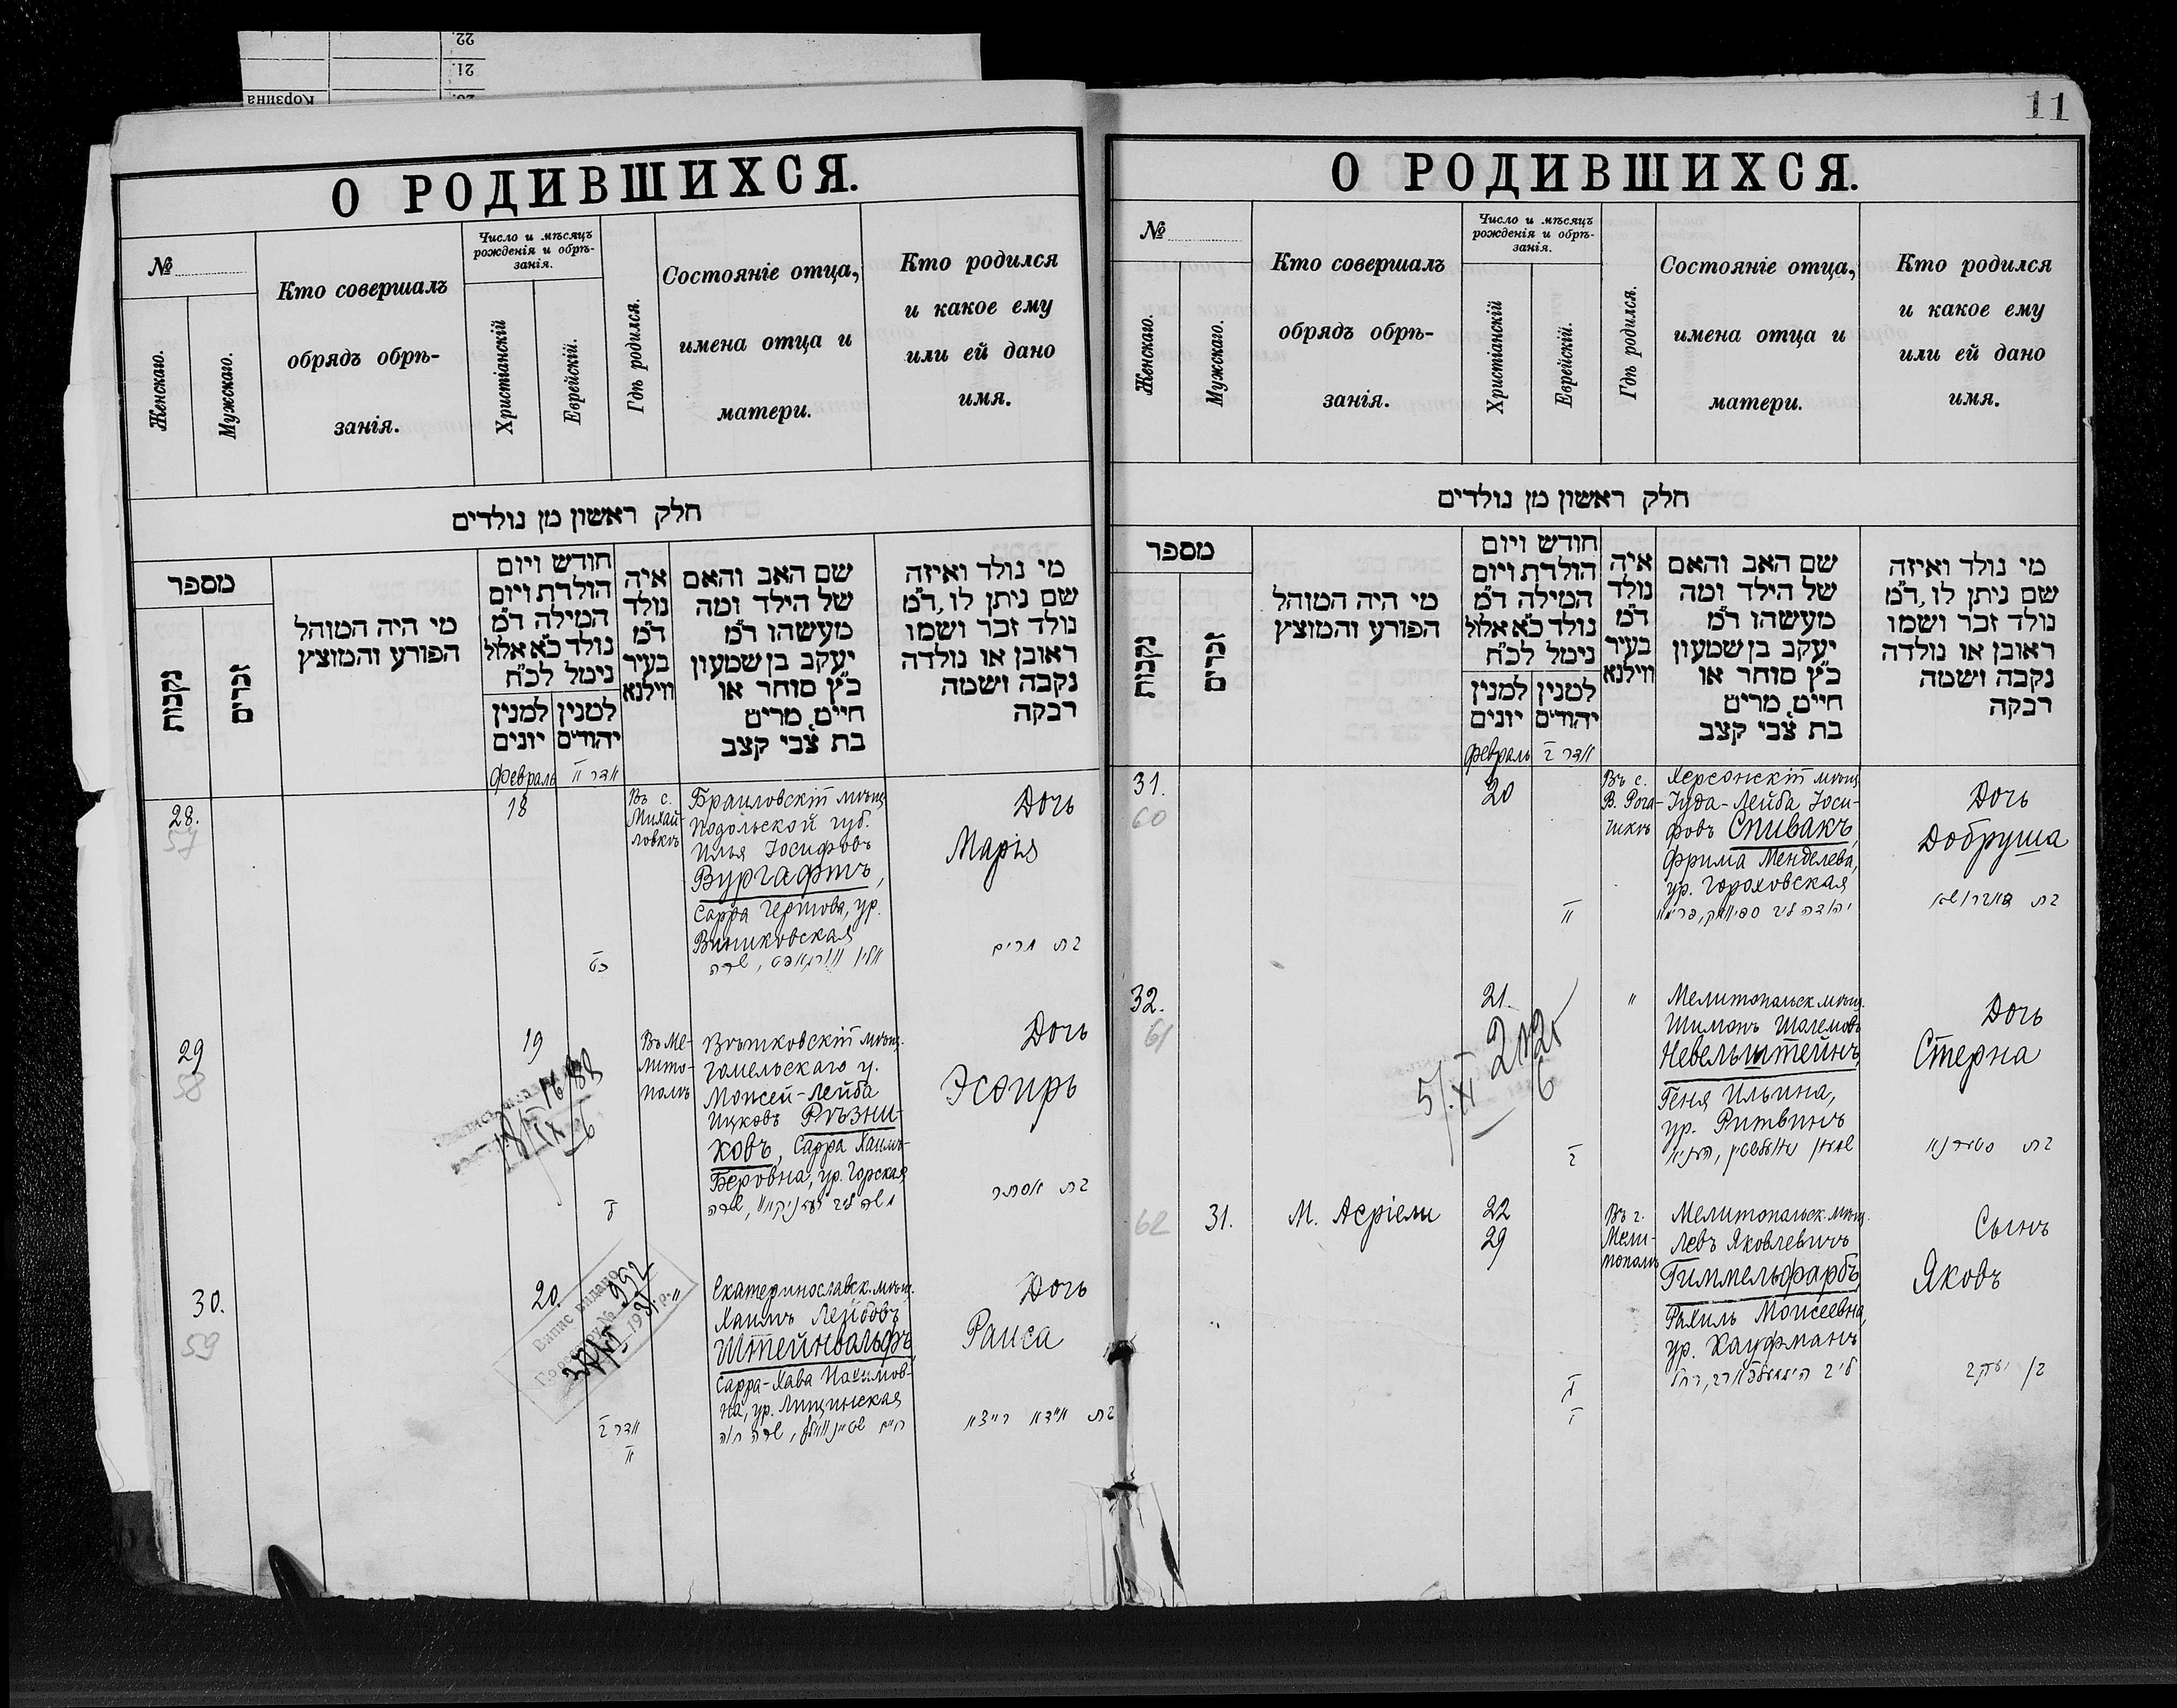 22.
21.
20.
Корзина
О РОДИВШИХСЯ.
№
Женскаго.
Мужскаго.
Кто совершалъ
обрядъ обрѣ-
занія.
Число и мѣсяцъ
рожденія и обрѣ-
занія.
Христіанскій
Еврейскій.
Гдѣ родился.
Состояніе отца,
имена отца и
матери.
Кто родился
и какое ему
или ей дано
имя.
חלק ראשון מן נולדים
מספר
נקבות
זכרים
מי היה המוהל
הפורע והמוצץ
חודש ויום
הולדת ויום
המילה ד״מ
נולד כ״א אלול
נימל לכ״ח
למנין
יונים
למנין
יהודים
איה
נולד
ד״מ
בעיר
ווילנא
שם האב והאם
של הילד ומה
מעשהו ד״מ
יעקב בן שמעון
כ״ץ סוחר או
חיים, מרים
בת צבי קצב
מי נולד ואיזה
שם ניתן לו, ד״מ
נולד זכר ושמו
ראובן או נולדה
נקבה ושמה
רבקה
Февраль
אדר
28.
57
18
Въ с.
Михай-
ловкѣ
Браиловскій мѣщ.
Подольской губ.
Илья Іосифовъ
Вургафтъ,
Сарра Герщова, ур.
Вишковская
Дочь
Марія
בת מרים
29
58
19
Въ Ме-
лито-
полѣ
Вѣтковскій мѣщ.
Гомельскаго у.
Моисей-Лейба
Ицковъ Рѣзни-
ковъ, Сарра Хаимъ-
Беровна, ур. Горская
Дочь
Эсѳирь
בת אסתר
30.
59
20.
"
Екатеринославск. мѣщ.
Хаимъ Лейбовъ
Штейнвольфъ,
Сарра-Хава
на, ур. Лищинская
Дочь
Раиса
אדר
Випис видано
992
1931 р.
11
О РОДИВШИХСЯ.
№
Женскаго.
Мужскаго.
Кто совершалъ
обрядъ обрѣ-
занія.
Число и мѣсяцъ
рожденія и обрѣ-
занія.
Христіанскій
Еврейскій.
Гдѣ родился.
Состояніе отца,
имена отца и
матери.
Кто родился
и какое ему
или ей дано
имя.
חלק ראשון מן נולדים
מספר
נקבות
זכרים
מי היה המוהל
הפורע והמוצץ
חודש ויום
הולדת ויום
המילה ד״מ
נולד כ״א אלול
נימל לכ״ח
למנין
יונים
למנין
יהודים
איה
נולד
ד״מ
בעיר
ווילנא
שם האב והאם
של הילד ומה
מעשהו ד״מ
יעקב בן שמעון
כ״ץ סוחר או
חיים, מרים
בת צבי קצב
מי נולד ואיזה
שם ניתן לו, ד״מ
נולד זכר ושמו
ראובן או נולדה
נקבה ושמה
רבקה
Февраль
אדר
31.
60
20
Въ с.
В. Рога-
чикѣ
Херсонскій мѣщ.
Іуда-Лейба Іоси-
фовъ Спивакъ,
Фрима Менделева,
ур. Гороховская
Дочь
Добруша
32.
61
21.
"
Мелитопольск. мѣщ.
Шиманъ
Невельштейнъ,
Геня Ильина,
ур. Ритвинъ
Дочь
Стерна
62
31.
М. Асріели
22
29
Въ г.
Мели-
тополѣ
Мелитопольск. мѣщ.
Левъ Яковлевичъ
Гиммельфарбъ,
Рахиль Моисеевна,
ур. Кауфманъ
Сынъ
Яковъ
בן יעקב